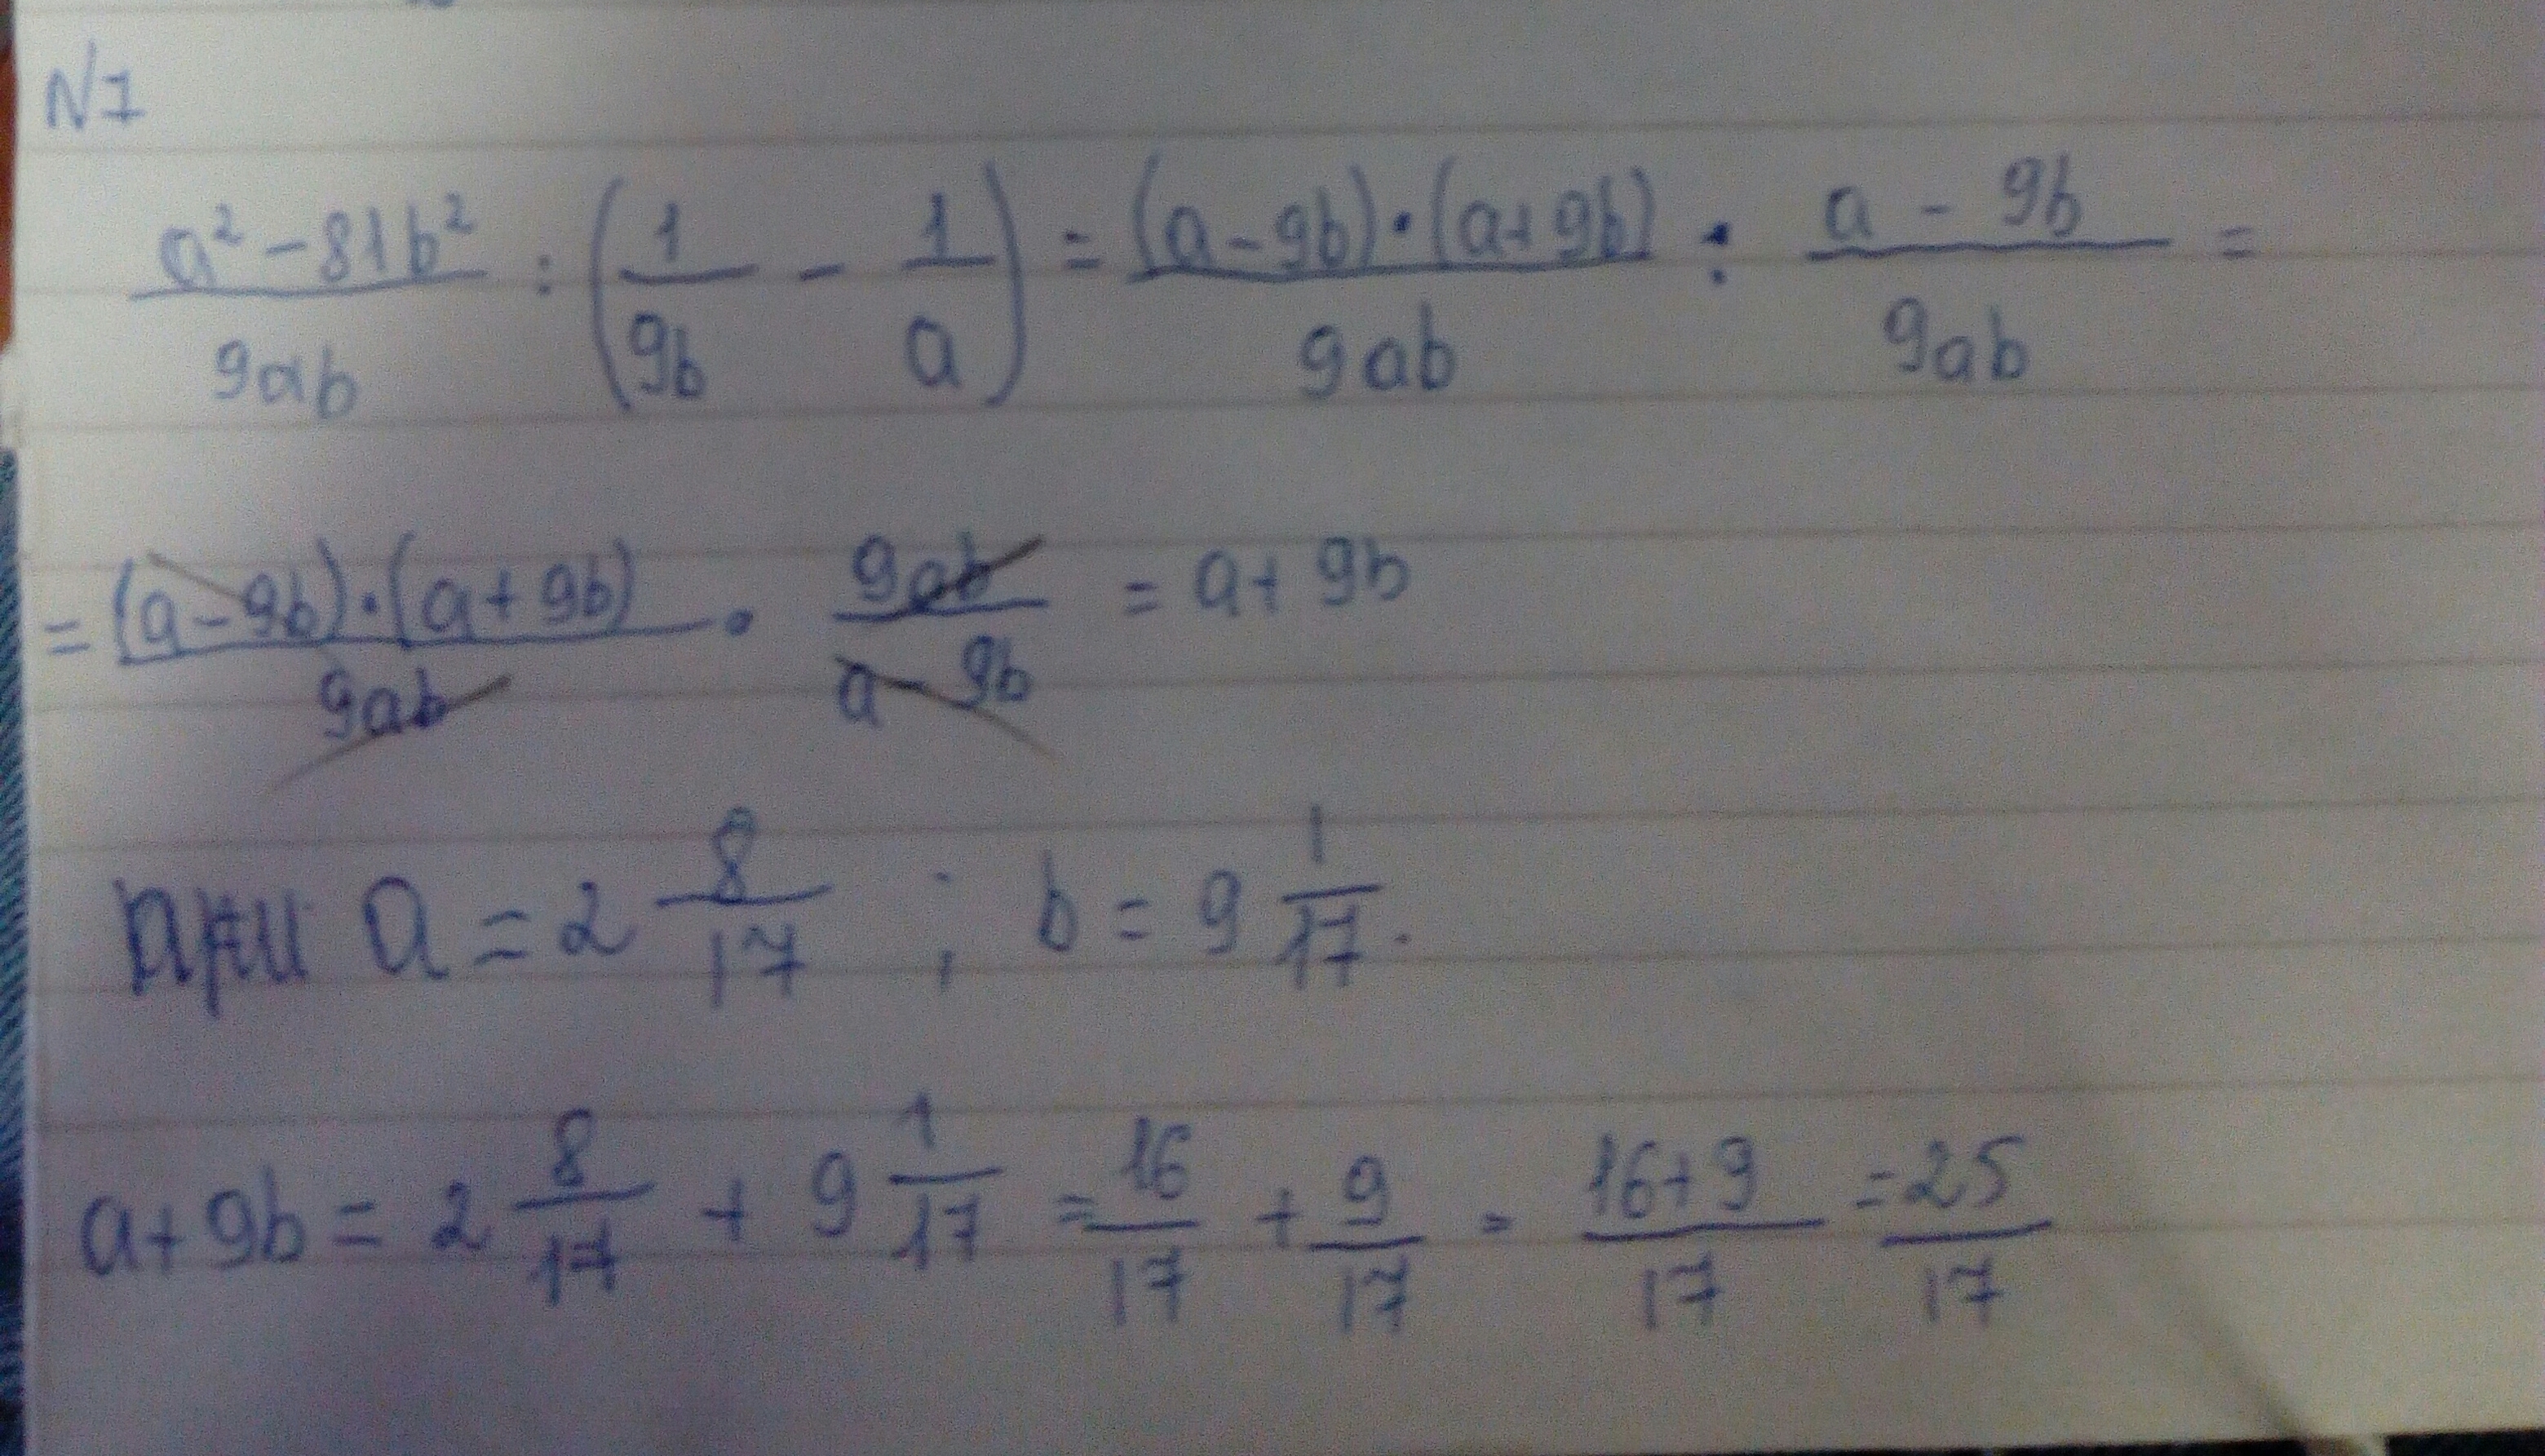 N1
(a² - 81b²)/(9ab) : (1/(9b) - 1/a) = ((a-9b)·(a+9b))/(9ab) : (a - 9b)/(9ab) =
= ((a-9b)·(a+9b))/(9ab) · (9ab)/(a-9b) = a+9b
при a = 2 8/17 ; b = 9 1/17.
a+9b = 2 8/17 + 9 1/17 = 16/17 + 9/17 = (16+9)/17 = 25/17